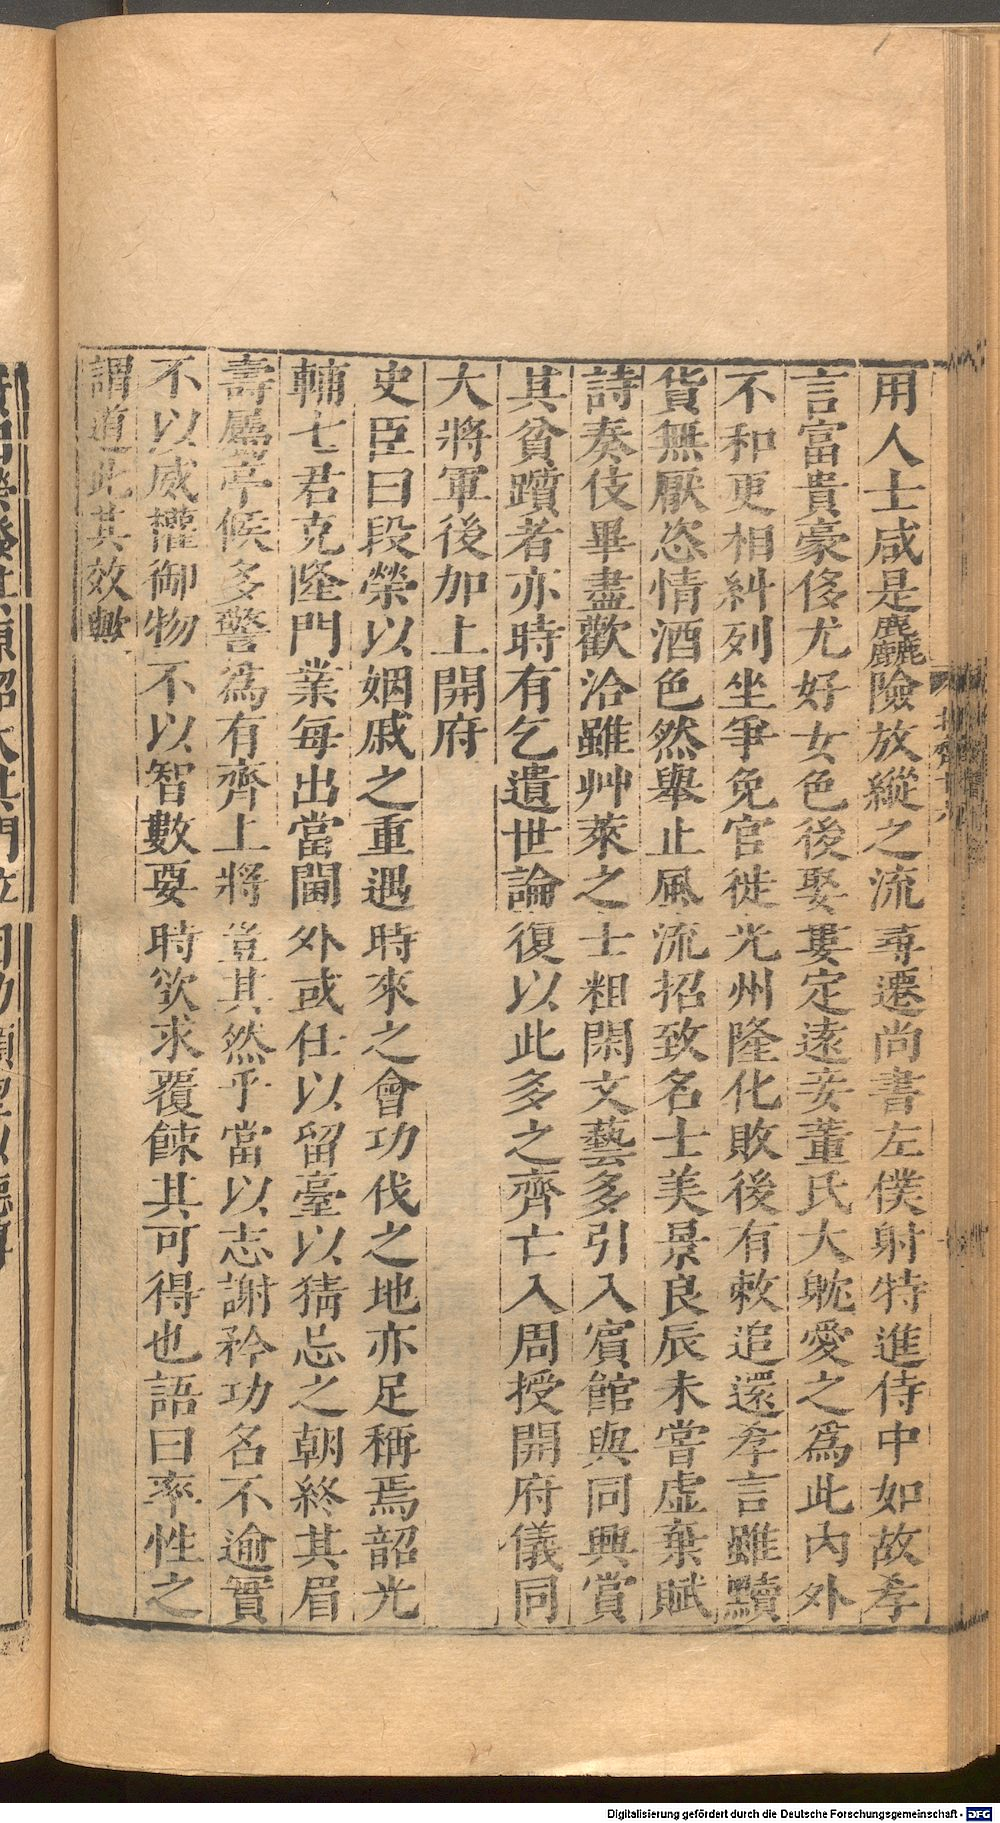 用人士咸是麤險放縱之流尋遷尚書左僕射特進侍中如故孝
言富貴豪侈尤好女色後娶婁定遠妾董氏大躭愛之爲此內外
不和更相糾列坐爭免官徙光州隆化敗後有敕追還孝言雖黷
貨無厭恣情酒色然舉止風流招致名士美景良辰未嘗虛棄賦
詩奏伎畢盡歡洽雖艸萊之士粗閑文藝多引入賓館與同興賞
其貧躓者亦時有乞遺世論復以此多之齊亡入周授開府儀同
大將軍後加上開府
史臣曰段榮以姻戚之重遇時來之會功伐之地亦足稱焉韶光
輔七君克隆門業每出當閫外或任以留臺以猜忌之朝終其眉
壽屬亭候多警爲有齊上將豈其然乎當以志謝矜功名不逾實
不以威權御物不以智數要時欲求覆餗其可得也語曰率性之
謂道此其效歟
北齊十六
Digitalisierung gefördert durch die Deutsche Forschungsgemeinschaft - DFG